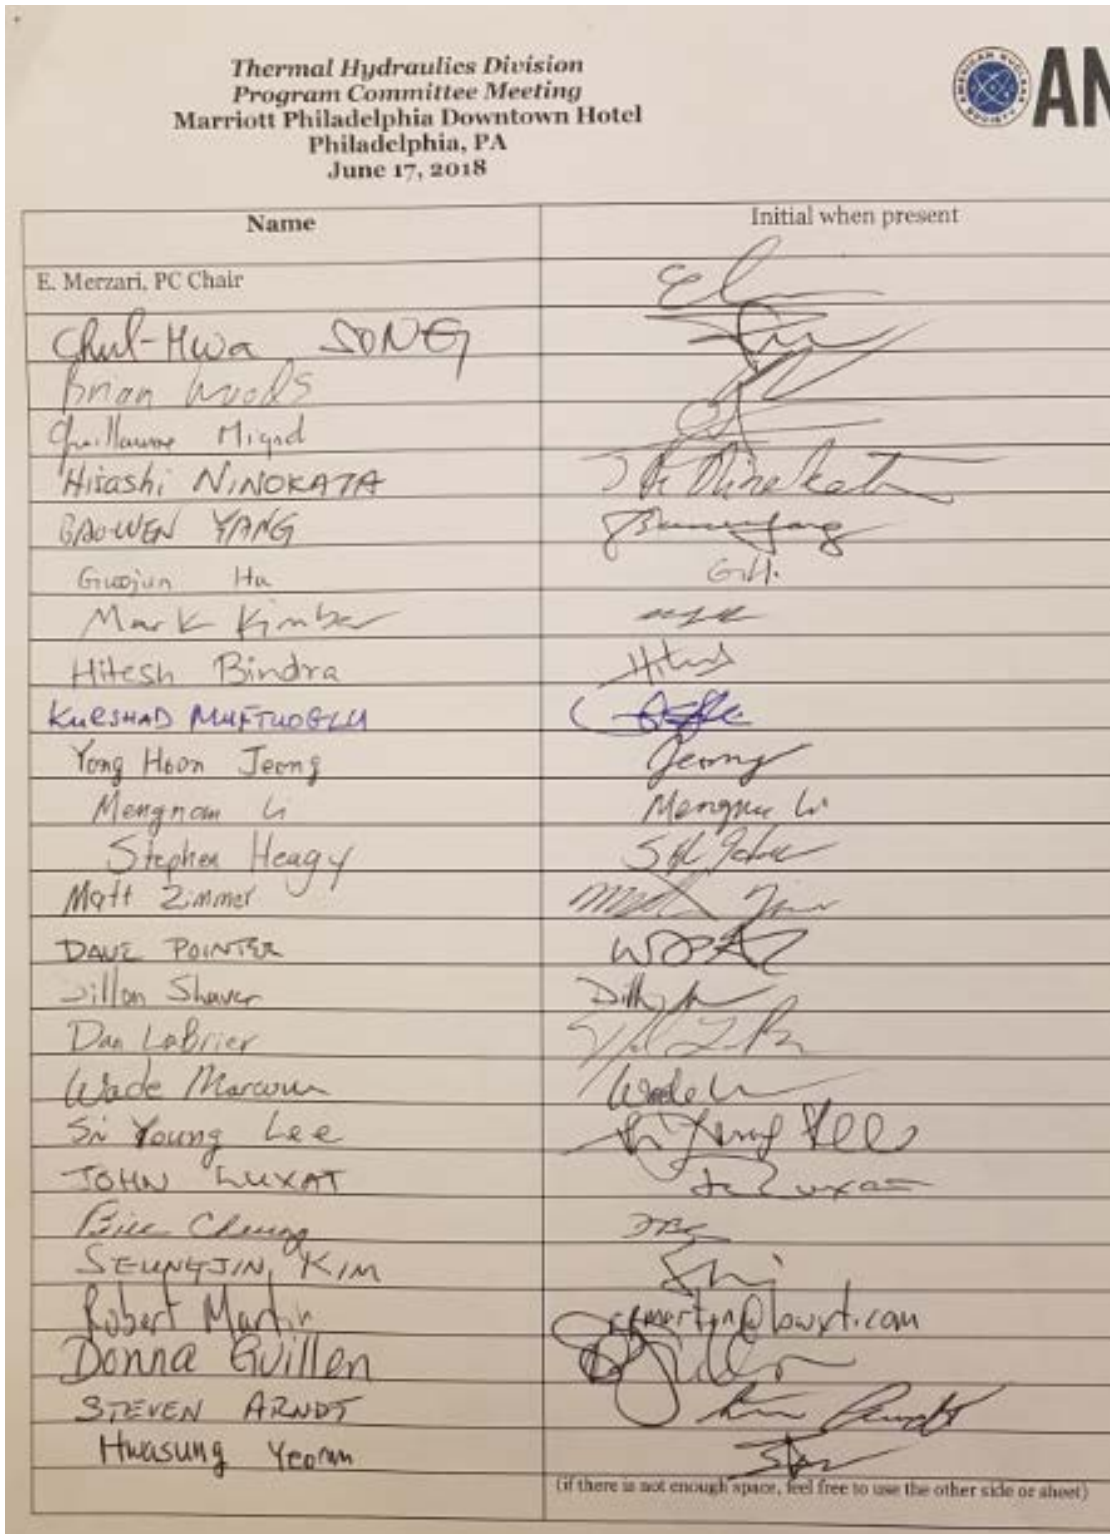 Thermal Hydraulics Division
Program Committee Meeting
Marriott Philadelphia Downtown Hotel
Philadelphia, PA
June 17, 2018
AMERICAN NUCLEAR SOCIETY AN
Name Initial when present
E. Merzari, PC Chair
Chul-Hwa SONG
Brian Woods
Guillaume
Hisashi NINOKATA
BAO-WEN YANG
Guojun Hu G.H.
Mark Kimber
Hitesh Bindra
KURSHAD MUFTUOGLU
Yong Hoon Jeong Jeong
Mengnan Li Li
Stephen Heagy
Matt Zimmer
DAVE POINTER
Dillon Shaver
Dan LaBrier
Wade Marcum Wade
Si Young Lee Si Young Lee
JOHN LUXAT Luxat
Bill Cheung
SEUNGJIN KIM
Robert Martin
Donna Guillen
STEVEN ARNDT
Hwasung Yeom
(if there is not enough space, feel free to use the other side or sheet)